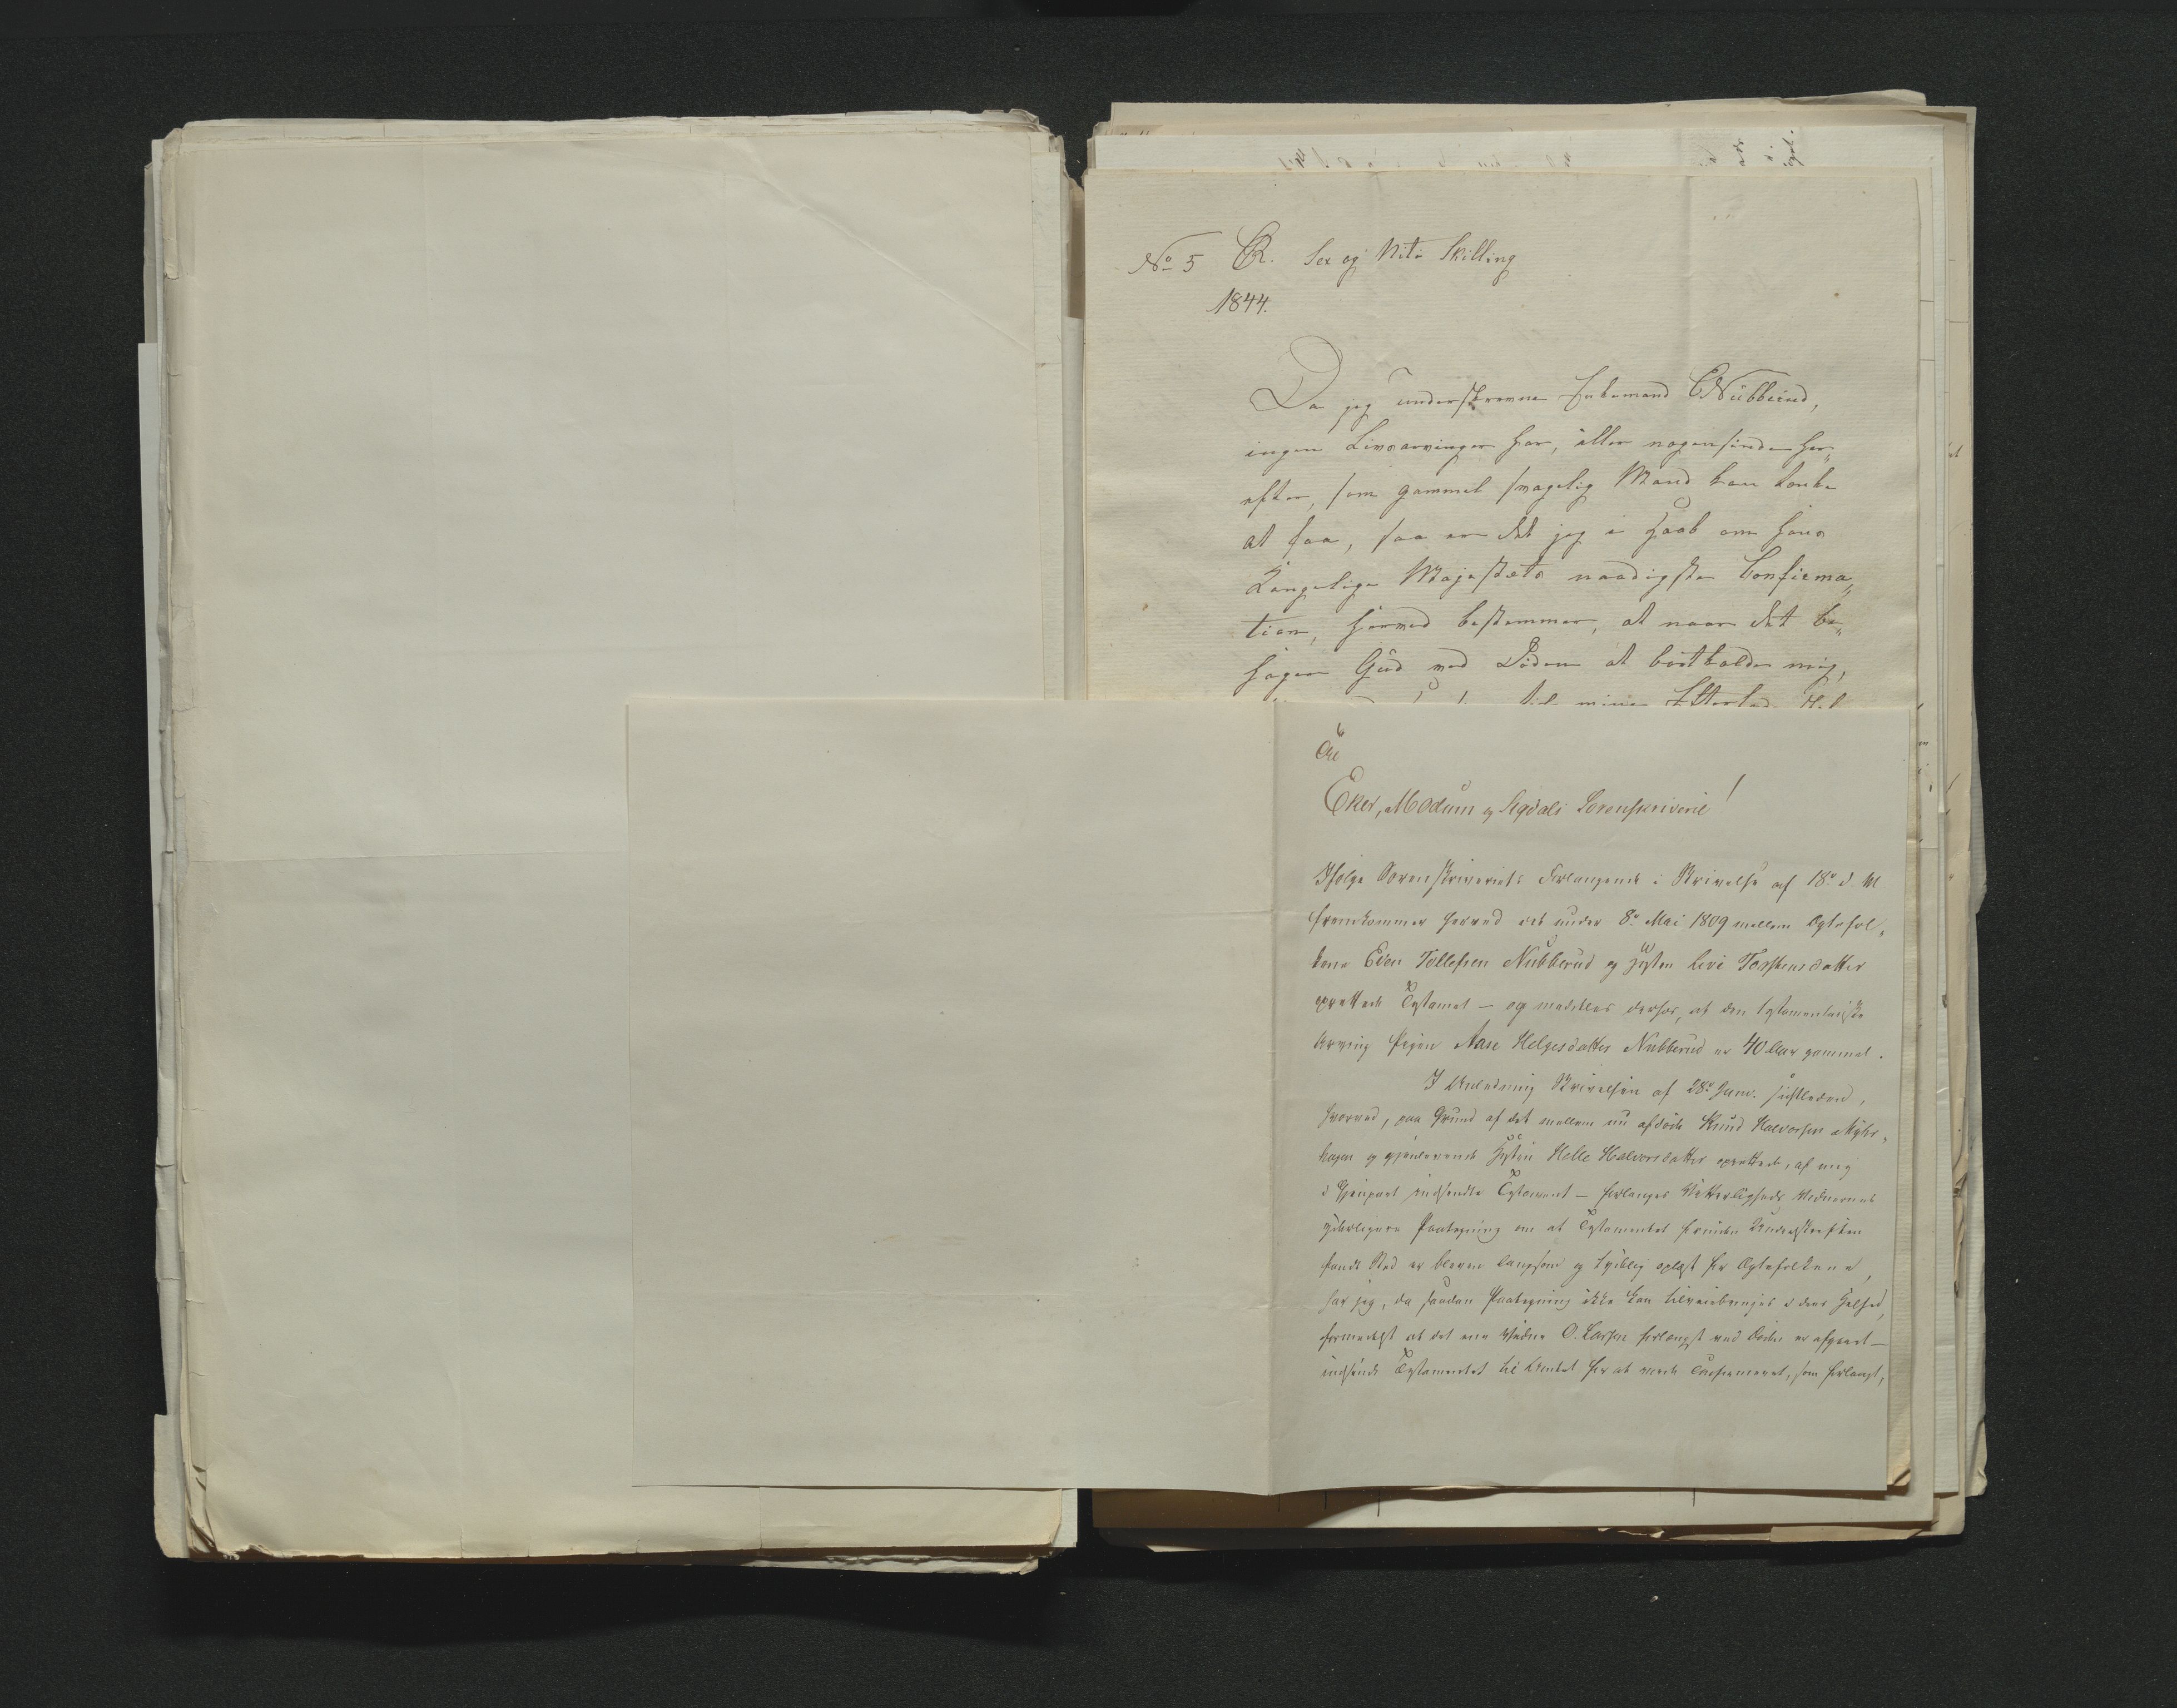 No 5 CR. Sex og Niti Skilling
1844.
Da jeg underskrevne Enkemand E Nubberud,
ingen Livsarvinger har, eller nogensinde her„
efter, som gammel svagelig Mand kan tænke
at faa, saa er det jeg i Haab om Hans
Kongelige Majestæts naadigste Confirma„
tion, herved bestemmer, at naar det be„
hager Gud ved Døden at bortkalde mig,
til mine
Til
Eker, Modum og Sigdals Sorenskriverie!
Ifølge Sorenskriveriets Forlangende i Skrivelse af 18de d. M
fremkommer herved det under 8de Mai 1809 mellem Egtefol„
kene Even Tollefsen Nubberud og Hustru Live Torstensdatter
oprettede Testament — og meddeles derhos, at den testamentariske
Arving Pigen Aase Helgesdatter Nubberud er 40 Aar gammel.
I Anledning Skrivelsen af 28de Janv. sidstleden,
hvorved, paa Grund af det mellem nu afdøde Knud Halvorsen
og gjenlevende Hustru Helle Halvorsdatter oprettede, af mig
i Gjenpart indsendte Testament — forlanges Vitterligheds Vidnernes
yderligere Paategning om at Testamentet forinden Underskriften
fandt Sted er bleven langsom og tydelig oplæst for Egtefolkene,
har jeg, da saadan Paategning ikke kan tilveiebringes i dens Helhed,
formedelst at det ene Vidne O. Larsen forlængst ved Døden er afgaaet —
indsendt Testamentet til Amtet for at vorde Confirmeret, som forlangt,